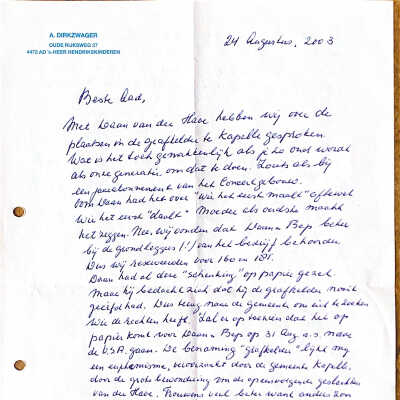 A. DIRKZWAGER
OUDE RIJKSWEG 37
4472 AD 's-HEER HENDRIKSKINDEREN
24 Augustus, 2003
Beste Aad,
Met Daan van der Have hebben wij over de
plaatsen in de grafkelder te Kapelle gesproken.
Wat is het toch gemakkelijk als je zo oud wordt
als onze generatie om dat te doen. Zoals als bij
een jaarabonnement van het Concertgebouw.
Oom Daan had het over "wie het eerst maalt" oftewel
wie het eerst "daalt". Moeder als oudste mocht
het zeggen. Nee, wij vonden dat Daan en Bep beter
bij de grondleggers (!) van het bedrijf behoorden
Dus wij reserveerden voor 160 en 161.
Daan had al deze "schenking" op papier gezet.
Maar hij bedacht zich dat hij de grafkelder nooit
geërfd had. Dus terug naar de gemeente om uit te zoeken
wie de rechten heeft. Zal er op toezien dat het op
papier komt voor Daan en Bep op 31 Aug a.s. naar
de U.S.A. gaan. De benaming "grafkelder" lijkt mij
een euphemisme, veroorzaakt door de gemeente Kapelle,
door de grote bewondering van de opeenvolgende geslachten
van der Have. Trouwens veel beter want anders zou